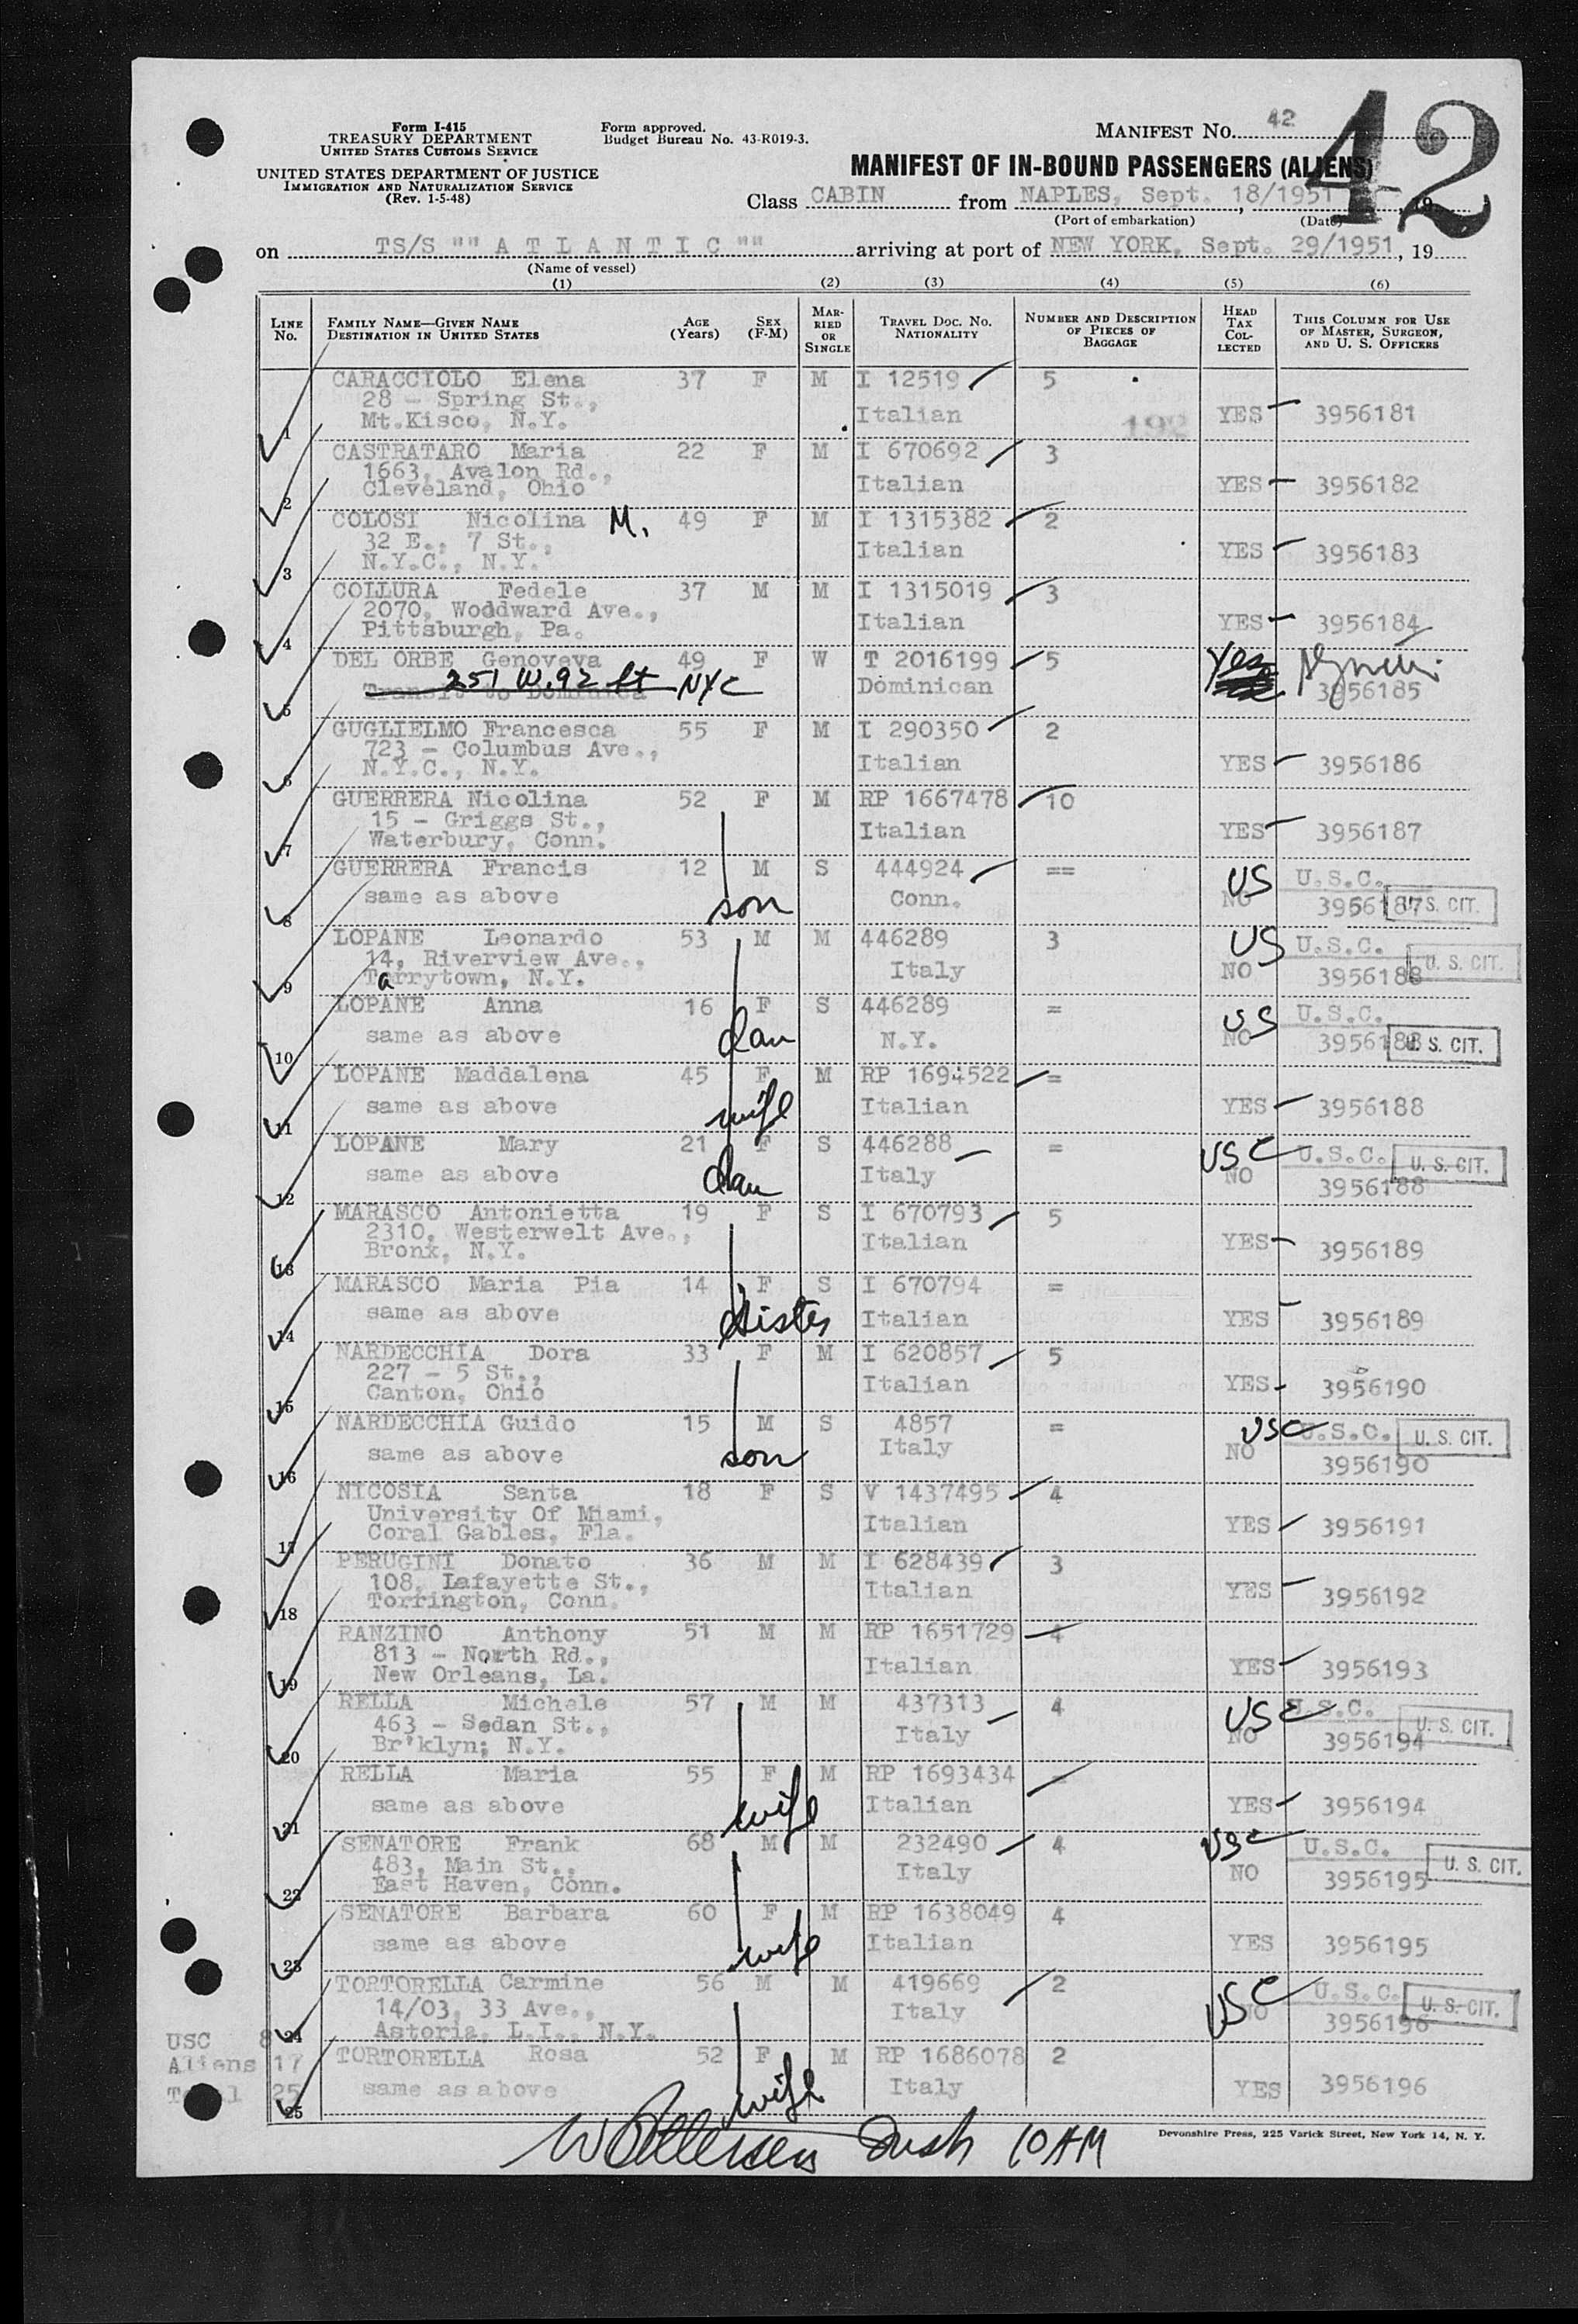 Form I-415
TREASURY DEPARTMENT
UNITED STATES CUSTOMS SERVICE
UNITED STATES DEPARTMENT OF JUSTICE
IMMIGRATION AND NATURALIZATION SERVICE
(Rev. 1-5-48)
Form approved.
Budget Bureau No. 43-R019-3.
MANIFEST No. 42
42
MANIFEST OF IN-BOUND PASSENGERS (ALIENS)
Class CABIN from NAPLES, Sept. 18/1951, 19
(Port of embarkation) (Date)
on TS/S "" A T L A N T I C "" arriving at port of NEW YORK, Sept. 29/1951, 19
(Name of vessel)
(1) (2) (3) (4) (5) (6)
LINE No. FAMILY NAME—GIVEN NAME DESTINATION IN UNITED STATES AGE (Years) SEX (F-M) MARRIED OR SINGLE TRAVEL DOC. NO. NATIONALITY NUMBER AND DESCRIPTION OF PIECES OF BAGGAGE HEAD TAX COLLECTED THIS COLUMN FOR USE OF MASTER, SURGEON, AND U. S. OFFICERS
CARACCIOLO Elena 37 F M I 12519 5
28 - Spring St., Italian YES 3956181
1 Mt.Kisco, N.Y. 192
CASTRATARO Maria 22 F M I 670692 3
1663, Avalon Rd.,
2 Cleveland, Ohio Italian YES 3956182
COLOSI Nicolina M. 49 F M I 1315382 2
32 E., 7 St., Italian YES 3956183
3 N.Y.C., N.Y.
COLLURA Fedele 37 M M I 1315019 3
2070, Woodward Ave., Italian YES 3956184
4 Pittsburgh, Pa.
DEL ORBE Genoveva 49 F W T 2016199 5 Yes
5 251 W. 92 St NYC Dominican 3956185
GUGLIELMO Francesca 55 F M I 290350 2
723 - Columbus Ave.,
6 N.Y.C., N.Y. Italian YES 3956186
GUERRERA Nicolina 52 F M RP 1667478 10
15 - Griggs St.,
7 Waterbury, Conn. Italian YES 3956187
GUERRERA Francis 12 M S 444924 == US U.S.C.
8 same as above son Conn. NO 3956187 U. S. CIT.
LOPANE Leonardo 53 M M 446289 3 US U.S.C.
14, Riverview Ave.,
9 Tarrytown, N.Y. Italy NO 3956188 U. S. CIT.
LOPANE Anna 16 F S 446289 = US U.S.C.
10 same as above dau N.Y. NO 3956188 U. S. CIT.
LOPANE Maddalena 45 F M RP 1694522 =
11 same as above wife Italian YES 3956188
LOPANE Mary 21 F S 446288 = USC U.S.C. U. S. CIT.
12 same as above dau Italy NO 3956188
MARASCO Antonietta 19 F S I 670793 5
2310, Westerwelt Ave.,
13 Bronx, N.Y. Italian YES 3956189
MARASCO Maria Pia 14 F S I 670794 =
14 same as above Sister Italian YES 3956189
NARDECCHIA Dora 33 F M I 620857 5
227 - 5 St.,
15 Canton, Ohio Italian YES 3956190
NARDECCHIA Guido 15 M S 4857 = USC U.S.C. U. S. CIT.
16 same as above son Italy NO 3956190
NICOSIA Santa 18 F S V 1437495 4
University Of Miami,
17 Coral Gables, Fla. Italian YES 3956191
PERUGINI Donato 36 M M I 628439 3
108, Lafayette St., Italian YES 3956192
18 Torrington, Conn.
RANZINO Anthony 51 M M RP 1651729 4
813 - North Rd.,
19 New Orleans, La. Italian YES 3956193
RELLA Michele 57 M M 437313 4 USC U.S.C.
463 - Sedan St., U. S. CIT.
20 Br'klyn; N.Y. Italy NO 3956194
RELLA Maria 55 F M RP 1693434 =
21 same as above wife Italian YES 3956194
SENATORE Frank 68 M M 232490 4 USC U.S.C.
483, Main St., U. S. CIT.
22 East Haven, Conn. Italy NO 3956195
SENATORE Barbara 60 F M RP 1638049 4
23 same as above wife Italian YES 3956195
TORTORELLA Carmine 56 M M 419669 2 USC U.S.C.
14/03, 33 Ave., Italy NO U. S. CIT.
24 Astoria, L.I., N.Y. 3956196
USC 8
TORTORELLA Rosa 52 F M RP 1686078 2
Aliens 17
25 same as above wife Italy YES 3956196
Total 25
10 AM
Devonshire Press, 225 Varick Street, New York 14, N. Y.